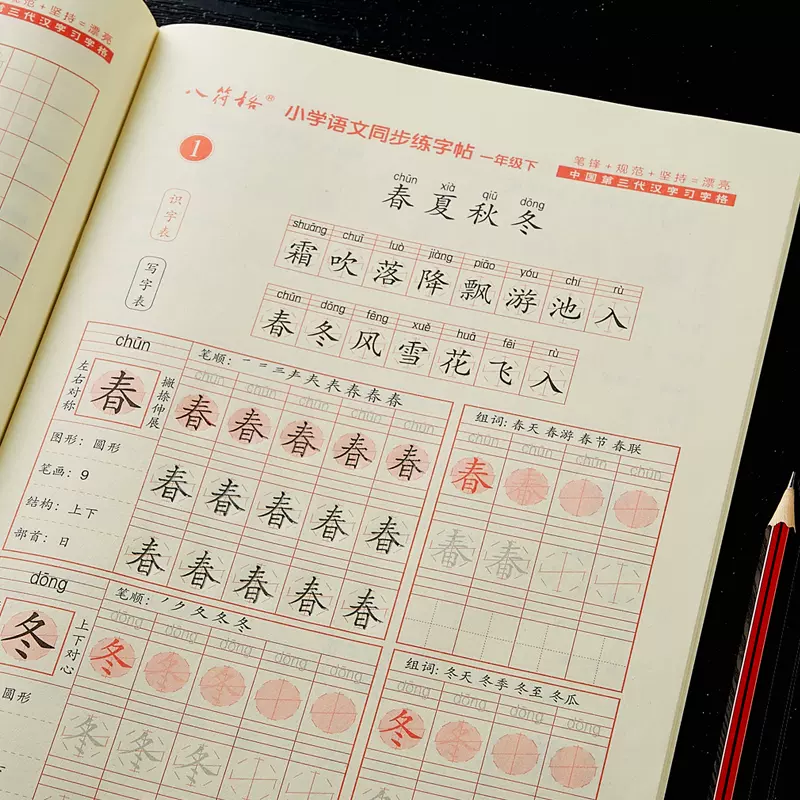 规范 + 坚持 = 漂亮
第三代汉字习字格
八符格®
小学语文同步练字帖 一年级下
笔锋 + 规范 + 坚持 = 漂亮
中国第三代汉字习字格
1
chūn xià qiū dōng
春 夏 秋 冬
识字表
shuāng chuī luò jiàng piāo yóu chí rù
霜 吹 落 降 飘 游 池 入
写字表
chūn dōng fēng xuě huā fēi rù
春 冬 风 雪 花 飞 入
chūn
左右对称
春
撇捺伸展
图形：圆形
笔画：9
结构：上下
部首：日
笔顺：一 二 三 𡗗 夫 表 春 春 春
chūn chūn chūn chūn chūn
春 春 春 春 春
春 春 春 春 春
春 春 春 春 春
组词：春天 春游 春节 春联
chūn chūn chūn chūn
春 春
春 春
dōng
冬
上下对心
圆形
笔顺：丿 ク 夂 冬 冬
dōng dōng dōng dōng dōng
冬 冬 冬
冬 冬 冬
组词：冬天 冬季 冬至 冬瓜
dōng dōng dōng dōng
冬 冬
冬